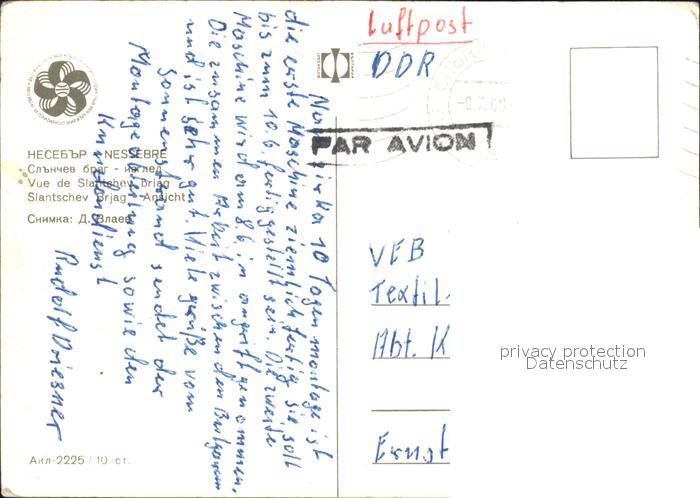 Luftpost
DDR
PAR AVION
НЕСЕБЪР - NESSÈBRE
Слънчев бряг - изглед
Vue de Slantschev brjag
Slantschev Brjag - Ansicht
Снимка: Д. Влаев
Nach zirka 10 Tagen montage ist
die erste Maschine ziemlich fertig sie soll
bis zum 10.6. fertiggestellt sein. Die zweite
Maschine wird am 8.6. in angriff genommen.
Die zusammen Arbeit zwischen den Bulgaren
und ist sehr gut. Viele grüße vom
Sonnenstrand sendet der
Montageleitung sowie den
Kundendienst
Rudolf Driesner
VEB
Textil.
Abt. K
Ernst
privacy protection
Datenschutz
Акл-2225 / 10 ст.